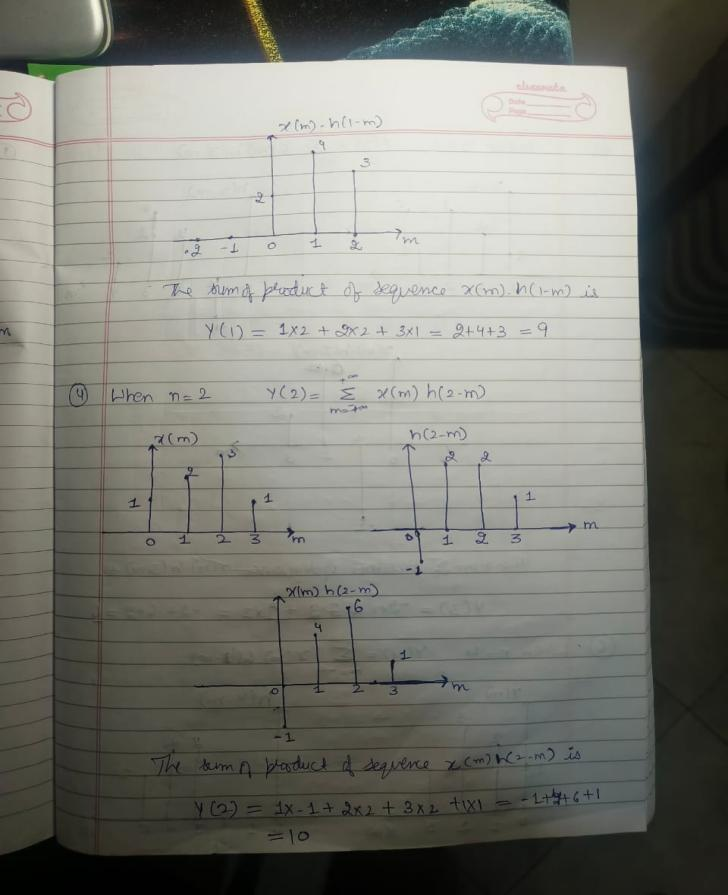 classmate
Date
Page
x(m)-h(1-m)
4
3
2
-2 -1 0 1 2 m
The sum of product of sequence x(m).h(1-m) is
Y(1) = 1x2 + 2x2 + 3x1 = 2+4+3 = 9
④ When n=2 Y(2)= +∞ Σ m=-∞ x(m) h(2-m)
x(m)
3
2
1 1
0 1 2 3 m
h(2-m)
2 2
1
0 1 2 3 m
-1
x(m) h(2-m)
6
4
1
0 1 2 3 m
-1
The sum of product of sequence x(m) h(2-m) is
Y(2) = 1x-1 + 2x2 + 3x2 +1x1 = -1+4+6+1
=10